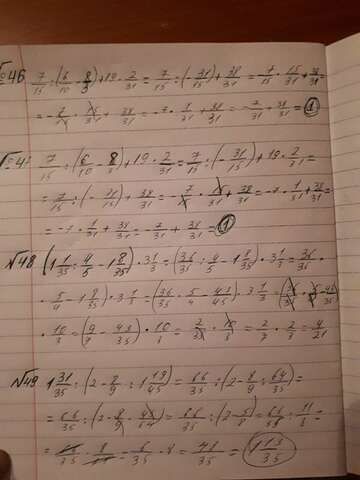 №46 7/15 : (6/10 - 8/3) + 19 · 2/31 = 7/15 : (- 31/15) + 38/31 = - 7/15 · 15/31 + 38/31 =
= - 7/15 · 15/31 + 38/31 = -7 · 1/31 + 38/31 = - 7/31 + 38/31 = 1
№4 7/15 : (6/10 - 8/3) + 19 · 2/31 = 7/15 : (- 31/15) + 19 · 2/31 =
= 7/15 : (- 31/15) + 38/31 = - 7/15 · 15/31 + 38/31 = -7 · 1/31 + 38/31 =
= -7 · 1/31 + 38/31 = - 7/31 + 38/31 = 1
№48 (1 1/35 : 4/5 - 1 8/35) · 3 1/3 = (36/35 : 4/5 - 1 8/35) · 3 1/3 = 36/35 ·
· 5/4 - 1 8/35) · 3 1/3 = (36/35 · 5/4 - 43/35) · 3 1/3 = (36/35 · 5/4 - 43/35)
· 10/3 = (9/7 - 43/35) · 10/3 = 2/35 · 10/3 = 2/7 · 2/3 = 4/21
№49 1 31/35 : (2 - 8/9 : 1 19/45) = 66/35 : (2 - 8/9 : 64/45) =
= 66/35 : (2 - 8/9 · 45/64) = 66/35 : (2 - 5/8) = 66/35 : 11/8 =
= 66/35 · 8/11 = 6/35 · 8 = 48/35 = 1 13/35